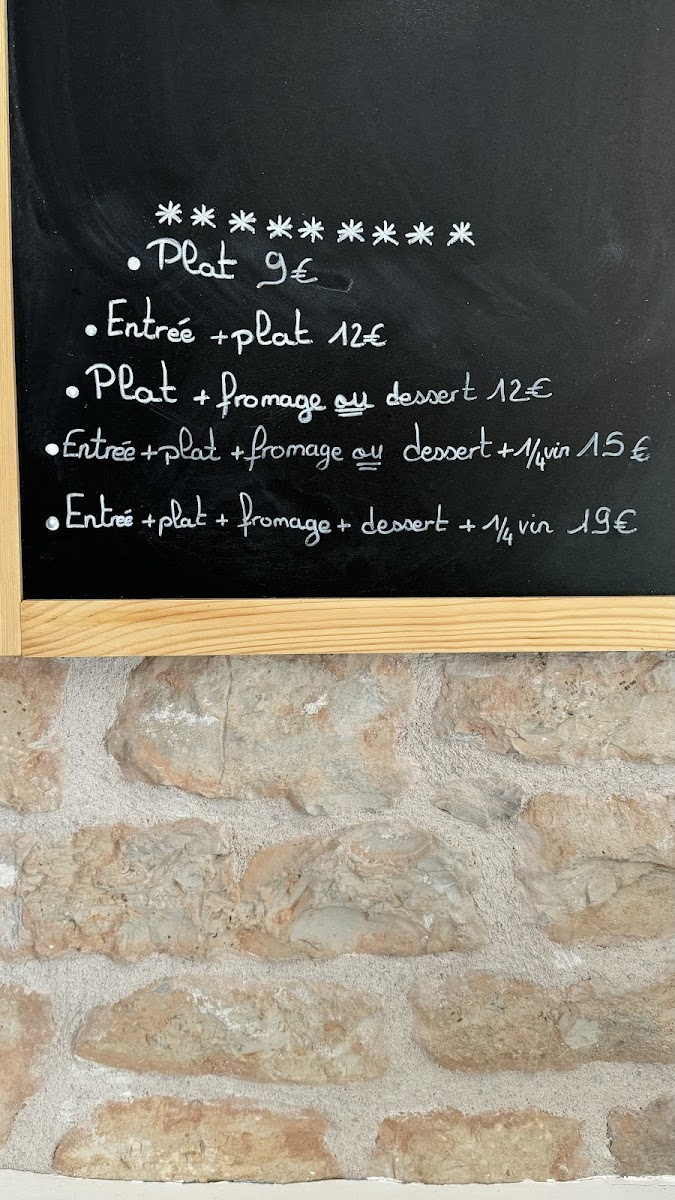 *********
• Plat 9€
• Entrée + plat 12€
• Plat + fromage ou dessert 12€
• Entrée + plat + fromage ou dessert + 1/4 vin 15€
• Entrée + plat + fromage + dessert + 1/4 vin 19€